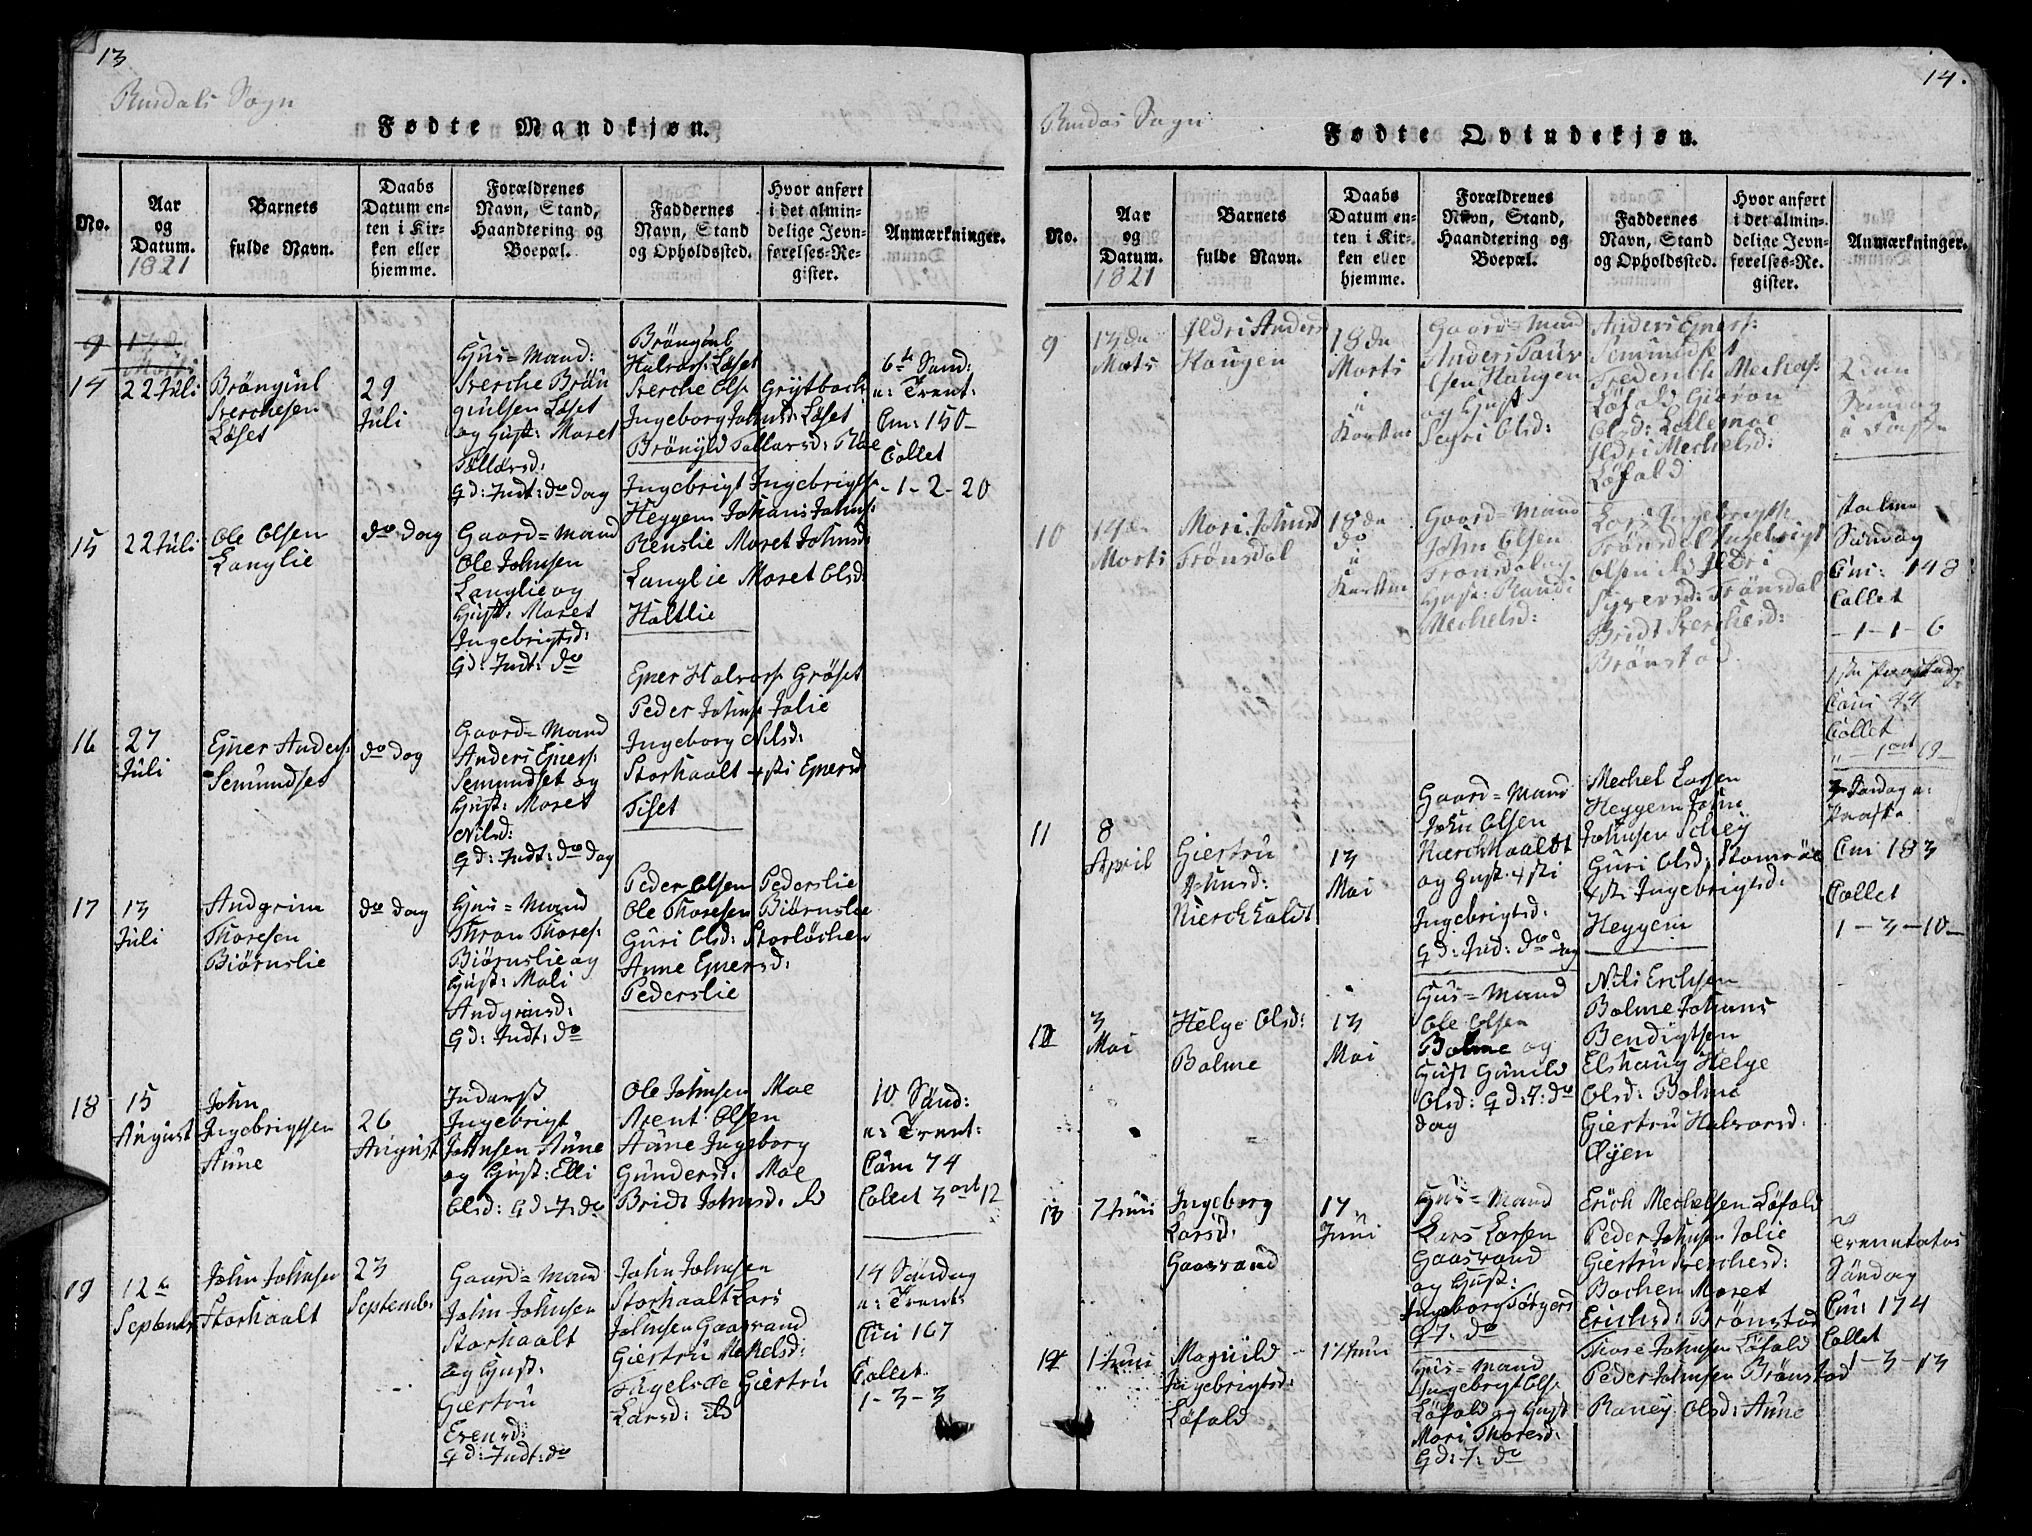 13
Rindals Sogn
Fødte Mandkjøn.
No.
Aar
og
Datum.
1821
Barnets
fulde Navn.
Daabs
Datum en-
ten i Kir-
ken eller
hjemme.
Forældrenes
Navn, Stand,
Haandtering og
Boepæl.
Faddernes
Navn, Stand
og Opholdssted.
Hvor anført
i det almin-
delige Jevn-
førelses-Re-
gister.
Anmærkninger.
9
14
22 Juli
Brøngiul
Sverchesen
Løset
29
Juli
Huus=Mand:
Sverche Brøn
giulsen Løset
og Hust: Maret
Tollorsd:
Gd: Indt: do dag
Brøngiul
Halvors: Løset
Sverche Ols: Grytbach
Ingeborg Johnsd: Løset
Brønyld Tollarsd: Røe
6te Sønd:
a: Trent:
Cum: 150
Collet
-1-2-20
15
22 Juli
Ole Olsen
Langlie
do dag
Gaard=Mand
Ole Johnsen
Langlie og
Hust: Maret
Ingebrigtsd:
Gd: Indt: do
Ingebrigt Ingebrigts:
Heggem Johans Johns:
Renslie Maret Johnsd:
Langlie Maret Olsd:
Holtlie
16
27
Juli
Ejner Anders:
Semundset
do dag
Gaard=Mand
Anders Ejners:
Semundset og
Hust: Maret
Nilsd:
Gd: Indt: do dag
Ejner Halvors: Grøset
Peder Johns: Jolie
Ingeborg Nilsd:
Storhaalt Ejnersd
Tiset
17
13
Juli
Andgrim
Thoresen
Biørnslie
do dag
Huus=Mand
Thron Thores:
Biørnslie og
Hust: Mali
Andgrimsd:
Gd: Indt: do
Peder Olsen Pederslie
Ole Thoresen Biørnslie
Guri Olsd: Storløchen
Anne Ejnersd:
Pederslie
18
15
August
John
Ingebrigtsen
Aune
26
August
Inderst
Ingebrigt
Johnsen Aune
og Hust: Elli
Olsd: Gd: I: do
Ole Johnsen Moe
Arent Olsen
Aune Ingeborg
Gundersd: Moe
Bridt Johnsd: do
10 Sønd:
a: Trent:
Com 74
Collet 3 ort 12
19
12te
September
John Johnsen
Storhaalt
23
September
Gaard=Mand
John Johnsen
Storhaalt
og Hust:
Giertru
Evensd:
Gd: Indt: do
John Johnsen
Storhaalt Lars
Johnsen Gaasvand
Giertru Mekelsd:
Fugelsøe Giertru
Larsd: do
14 Søndag
a: Trents
Cui 167
Collet
1-3-3
14.
Rindals Sogn
Fødte Qvindekjøn.
No.
Aar
og
Datum.
1821
Barnets
fulde Navn.
Daabs
Datum en-
ten i Kir-
ken eller
hjemme.
Forældrenes
Navn, Stand,
Haandtering og
Boepæl.
Faddernes
Navn, Stand
og Opholdssted.
Hvor anført
i det almin-
delige Jevn-
førelses-Re-
gister.
Anmærkninger.
9
13de
Marts
Ildri Anders
Haugen
18de
Marts
i
Kirken
Gaard=Mand
Anders Paul
sen Haugen
og Hust
Segri Olsd:
Anders Ejners:
Semundset
Frederich Mechels:
Løfald Giøron
Olsd: Lillemoe
Ildri Mechelsd:
Løfald
2den
Søndag
i Faste
10
14de
Marts
Mari Johnsd
Trønsdal
18de
do
i
Kirken
Gaard=Mand
John Olsen
Trønsdal og
Hust: Randi
Mechelsd:
Lars Ingebrigts:
Trønsdal Ingebrigt
Olsen do Ildri
Syversd: Trønsdal
Bridt Sverchesd:
Brønstad
Palme
Søndag
Cui: 148
Collet
-1-1-6
Cui 44
Collet
11
8
April
Giertru
Johnsd:
Kierchholdt
13
Mai
Gaard=Mand
John Olsen
Kierchhaaldt
og Hust
Ingebrigtsd:
Gd: Ind: do dag
Mechel Larsen
Heggem John
Johnsen Schey
Guri Olsd: Stomrøe
Ingebrigtsd:
Heggem
3 Søndag a:
Paaske
Cui 183
Collet
1-3-10
12
3
Mai
Helge Olsd:
Bolme
13
Mai
Huus=Mand
Ole Olsen
Bolme og
Hust Gunild
Olsd: Gd: I: do
dag
Nils Erichsen
Bolme Johans
Bendigtsen
Elshaug Helge
Olsd: Bolme
Giertru Halvorsd:
Øyen
13
7 Juni
Ingeborg
Larsd:
Gaasvand
17
Juni
Huus=Mand
Lars Larsen
Gaasvand
og Hust:
Ingeborg Tørgersd
G I: do
Erich Mechelsen Løfald
Peder Johnsen Jolie
Giertru Sverchesd:
Bachen Maret
Erichsd: Brønstad
Trenitatis
Søndag
Cui: 174
Collet
1-3-13
14
1 Juni
Magnild
Ingebrigtsd:
Løfald
17 Juni
Huus=Mand
Ingebrigt Ols:
Løfald og Hust
Mari Thoresd:
Gd: I: do
Thore Johnsen Løfald
Peder Johnsen Brønstad
Raney Olsd: Aune